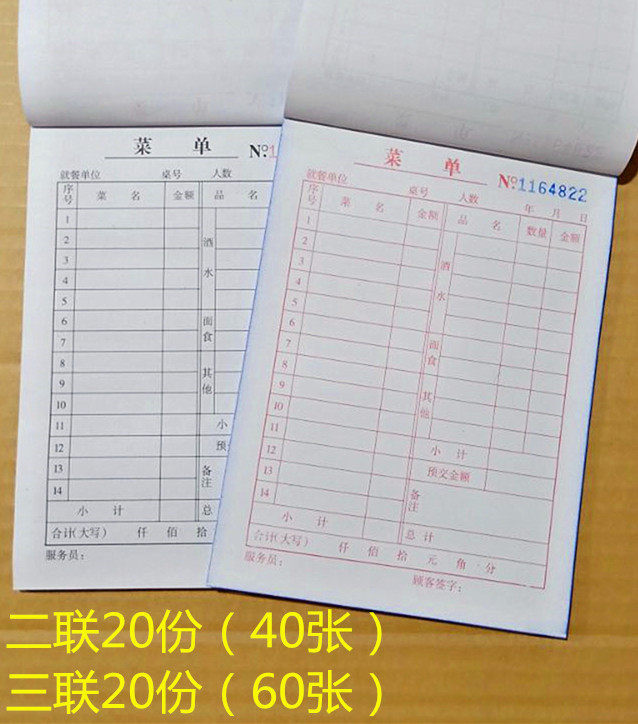 菜 单
N⁰.1
就餐单位 桌号 人数
序号 菜 名 金额 品 名
1
2
3
4
5
6
7
8
9
10
11
12
13
14
酒水
面食
其他
小
预
备注
小 计 总
合计(大写) 仟 佰 拾
服务员：
菜 单
N⁰.1164822
就餐单位 桌号 人数 年 月 日
序号 菜 名 金额 品 名 数量 金额
1
2
3
4
5
6
7
8
9
10
11
12
13
14
酒水
面食
其他
小 计
预交金额
备注
小 计 总 计
合计(大写) 仟 佰 拾 元 角 分
服务员： 顾客签字：
二联20份（40张）
三联20份（60张）